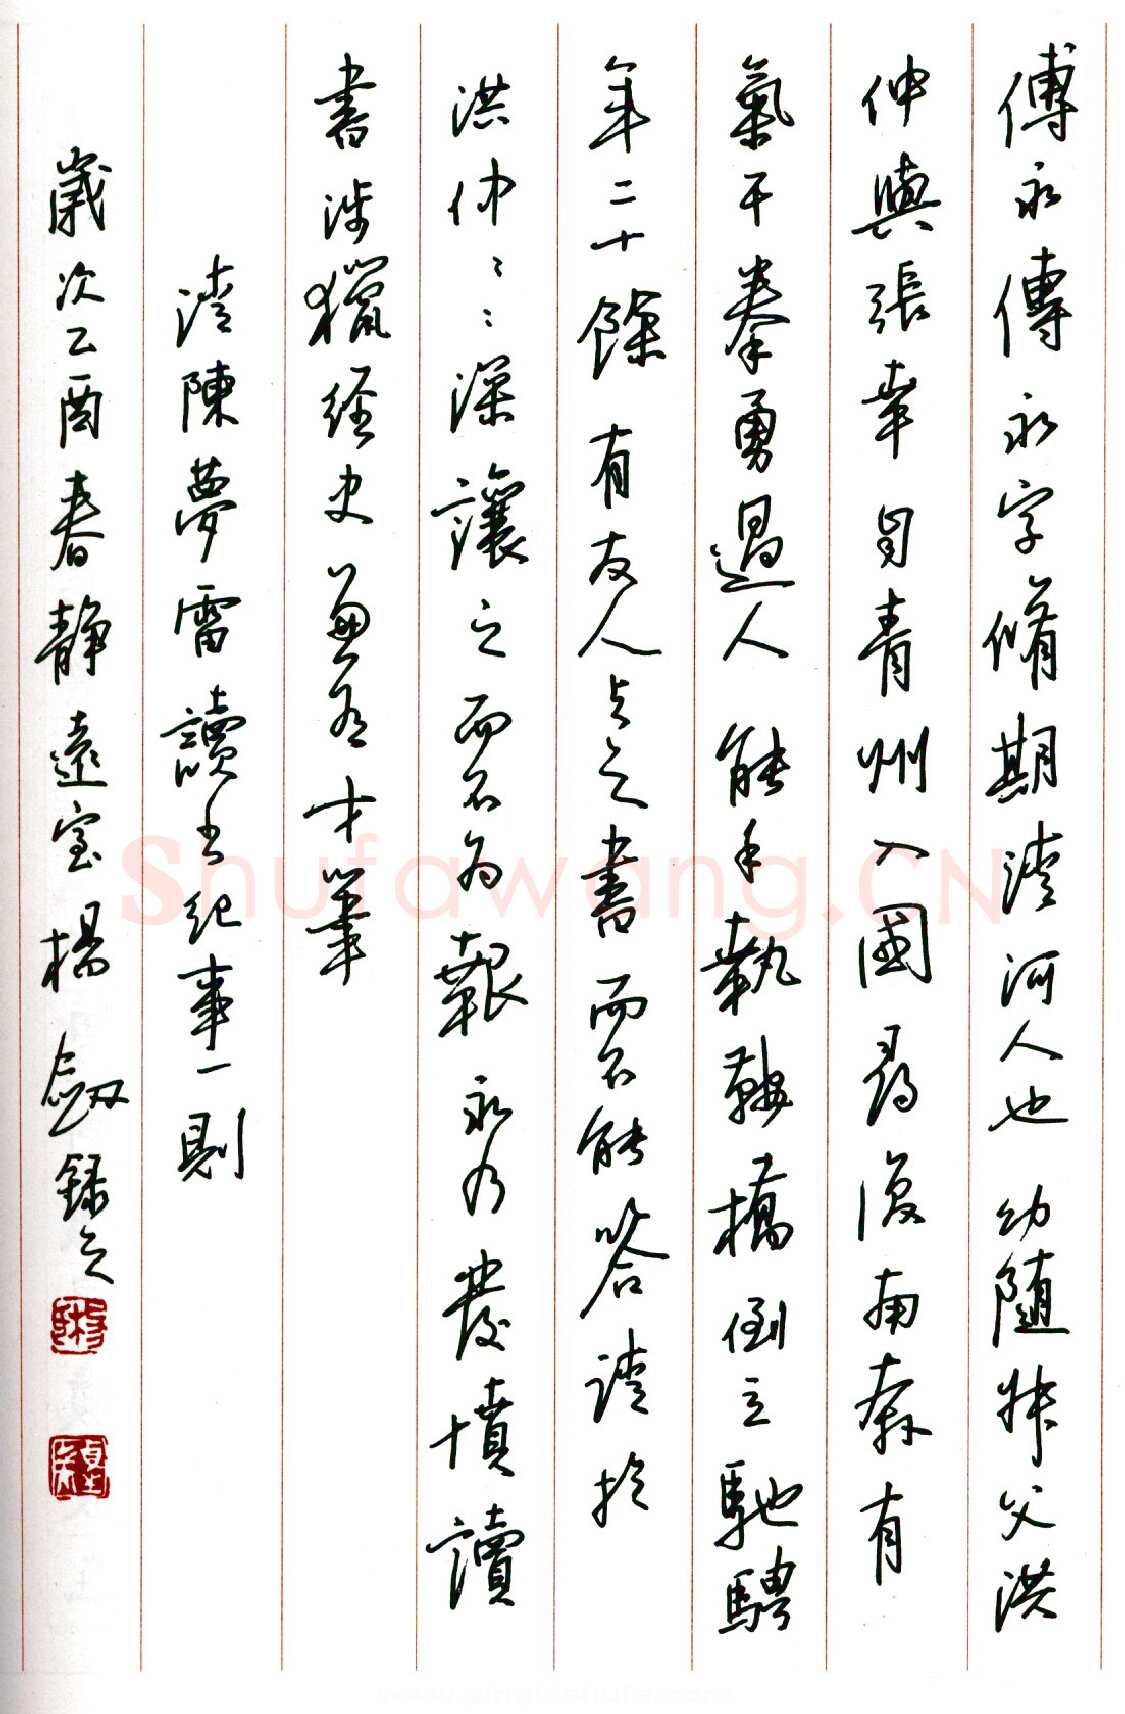 傅永傳永字脩期清河人也幼随叔父洪
仲與張幸自青州入國尋復南奔有
氣干拳勇過人能手執鞍橋倒立馳騁
年二十餘有友人与之書而不能答請於
洪仲洪仲深讓之而不為報永乃發憤讀
書涉獵经史兼有才筆
清陳夢雷讀书纪事一則
歲次乙酉春静遠室楊劔録之
Shufawang.CN